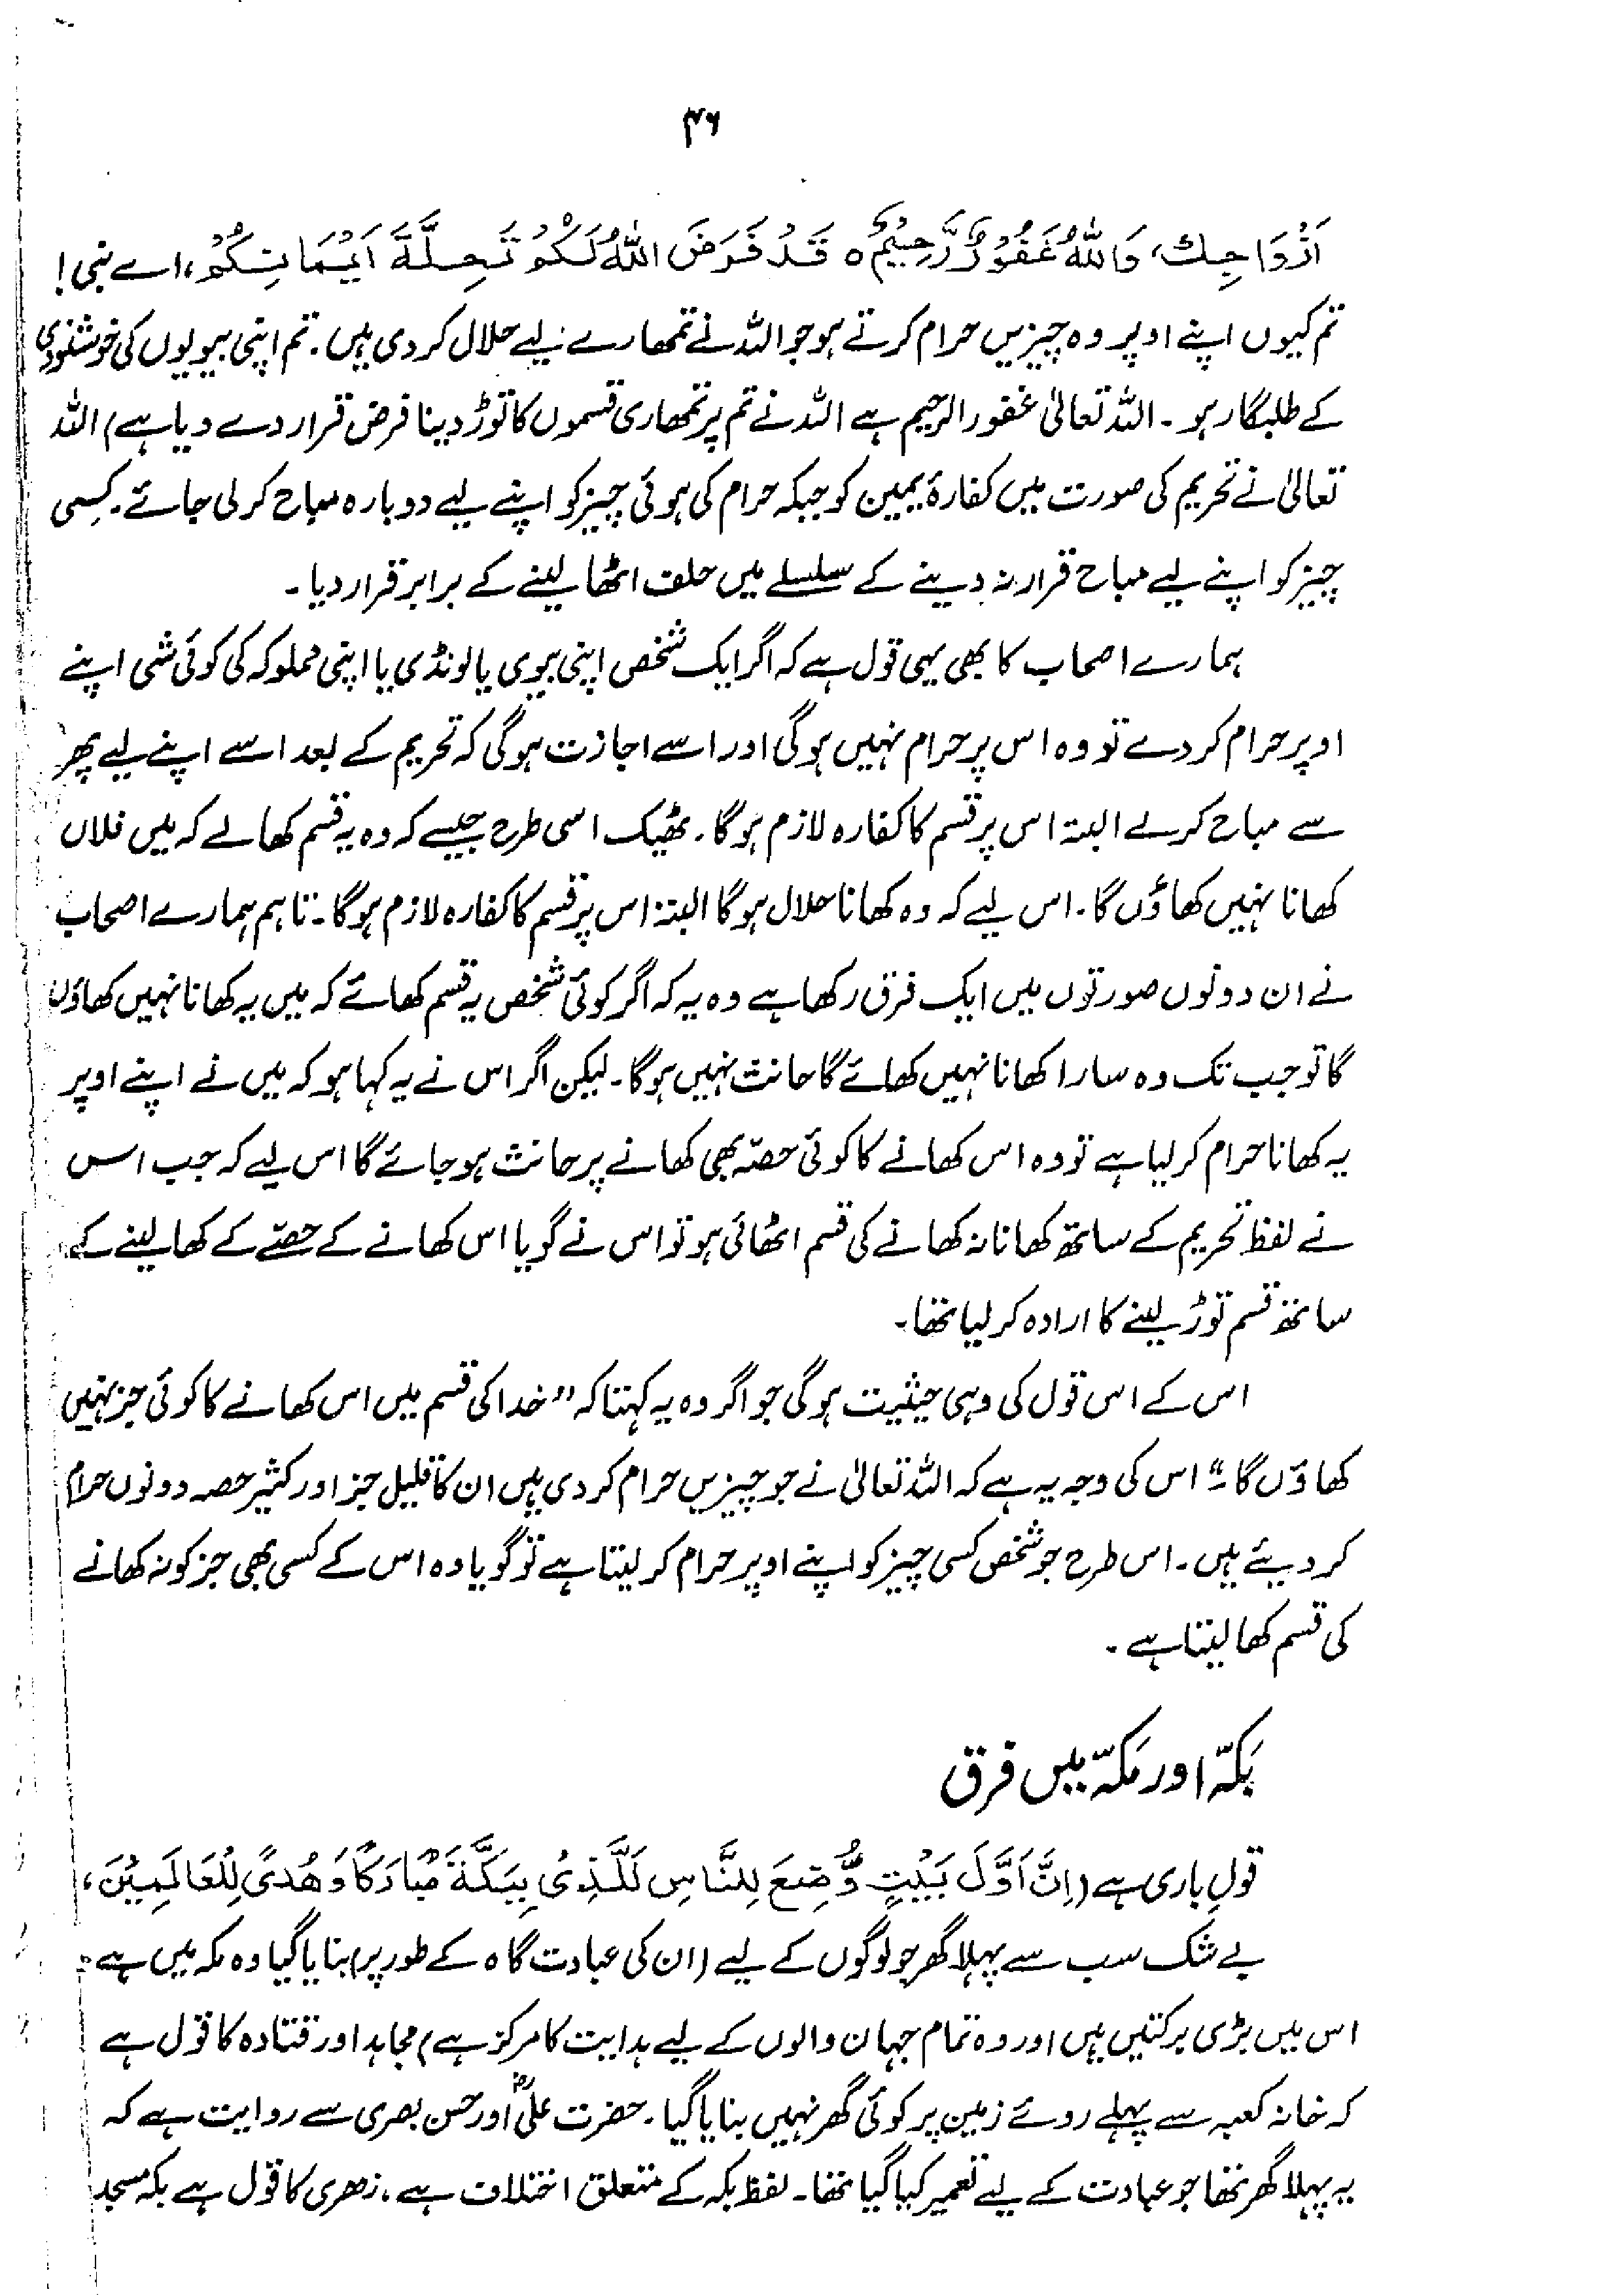 ۴۶
اَزْوَاجِكَ، وَاللّٰهُ غَفُوْرٌ رَّحِيْمٌ ه قَدْ فَرَضَ اللّٰهُ لَكُمْ تَحِلَّةَ اَيْمَانِكُمْ، اے نبی!
تم کیوں اپنے اوپر وہ چیزیں حرام کرتے ہو جو اللہ نے تمھارے لیے حلال کردی ہیں۔ تم اپنی بیویوں کی خوشنودی
کے طلبگار ہو۔ اللہ تعالیٰ غفور الرحیم ہے اللہ نے تم پر تمھاری قسموں کا توڑ دینا فرض قرار دے دیا ہے) اللہ
تعالیٰ نے تحریم کی صورت میں کفارۂ یمین کو جبکہ حرام کی ہوئی چیز کو اپنے لیے دوبارہ مباح کرلی جائے۔ کسِی
چیز کو اپنے لیے مباح قرار نہ دینے کے سلسلے میں حلف اٹھا لینے کے برابر قرار دیا۔
ہمارے اصحاب کا بھی یہی قول ہے کہ اگر ایک شخص اپنی بیوی یا لونڈی یا اپنی مملوکہ کی کوئی شی اپنے
اوپر حرام کردے تو وہ اس پر حرام نہیں ہوگی اور اسے اجازت ہوگی کہ تحریم کے بعد اسے اپنے لیے پھر
سے مباح کرلے البتہ اس پر قسم کا کفارہ لازم ہوگا۔ ٹھیک اسی طرح جیسے کہ وہ یہ قسم کھالے کہ میں فلاں
کھانا نہیں کھاؤں گا۔ اس لیے کہ وہ کھانا حلال ہوگا البتہ اس پر قسم کا کفارہ لازم ہوگا۔ تاہم ہمارے اصحاب
نے ان دونوں صورتوں میں ایک فرق رکھا ہے وہ یہ کہ اگر کوئی شخص یہ قسم کھائے کہ میں یہ کھانا نہیں کھاؤں
گا تو جب تک وہ سارا کھانا نہیں کھائے گا حانث نہیں ہوگا۔ لیکن اگر اس نے یہ کہا ہو کہ میں نے اپنے اوپر
یہ کھانا حرام کرلیا ہے تو وہ اس کھانے کا کوئی حصّہ بھی کھانے پر حانث ہوجائے گا اس لیے کہ جب اس
نے لفظ تحریم کے ساتھ کھانا نہ کھانے کی قسم اٹھائی ہو تو اس نے گویا اس کھانے کے حصّے کے کھالینے کے
ساتھ قسم توڑ لینے کا ارادہ کرلیا تھا۔
اس کے اس قول کی وہی حیثیت ہوگی جو اگر وہ یہ کہتا کہ ”خدا کی قسم میں اس کھانے کا کوئی جز نہیں
کھاؤں گا۔“ اس کی وجہ یہ ہے کہ اللہ تعالیٰ نے جو چیزیں حرام کردی ہیں ان کا قلیل جز اور کثیر حصہ دونوں حرام
کردیئے ہیں۔ اس طرح جو شخص کسی چیز کو اپنے اوپر حرام کرلیتا ہے تو گویا وہ اس کے کسی بھی جز کو نہ کھانے
کی قسم کھا لیتا ہے۔
بَکّہ اور مَکّہ میں فرق
قولِ باری ہے (اِنَّ اَوَّلَ بَيْتٍ وُّضِعَ لِلنَّاسِ لَلَّذِيْ بِبَكَّةَ مُبَارَكًا وَهُدًى لِّلْعَالَمِيْنَ،
بے شک سب سے پہلا گھر جو لوگوں کے لیے (ان کی عبادت گاہ کے طور پر) بنایا گیا وہ مکہ میں ہے۔
اس میں بڑی برکتیں ہیں اور وہ تمام جہان والوں کے لیے ہدایت کا مرکز ہے) مجاہد اور قتادہ کا قول ہے
کہ خانہ کعبہ سے پہلے روئے زمین پر کوئی گھر نہیں بنایا گیا۔ حضرت علیؓ اور حسن بصری سے روایت ہے کہ
یہ پہلا گھر تھا جو عبادت کے لیے تعمیر کیا گیا تھا۔ لفظ بکہ کے متعلق اختلاف ہے، زھری کا قول ہے بکہ مسجد